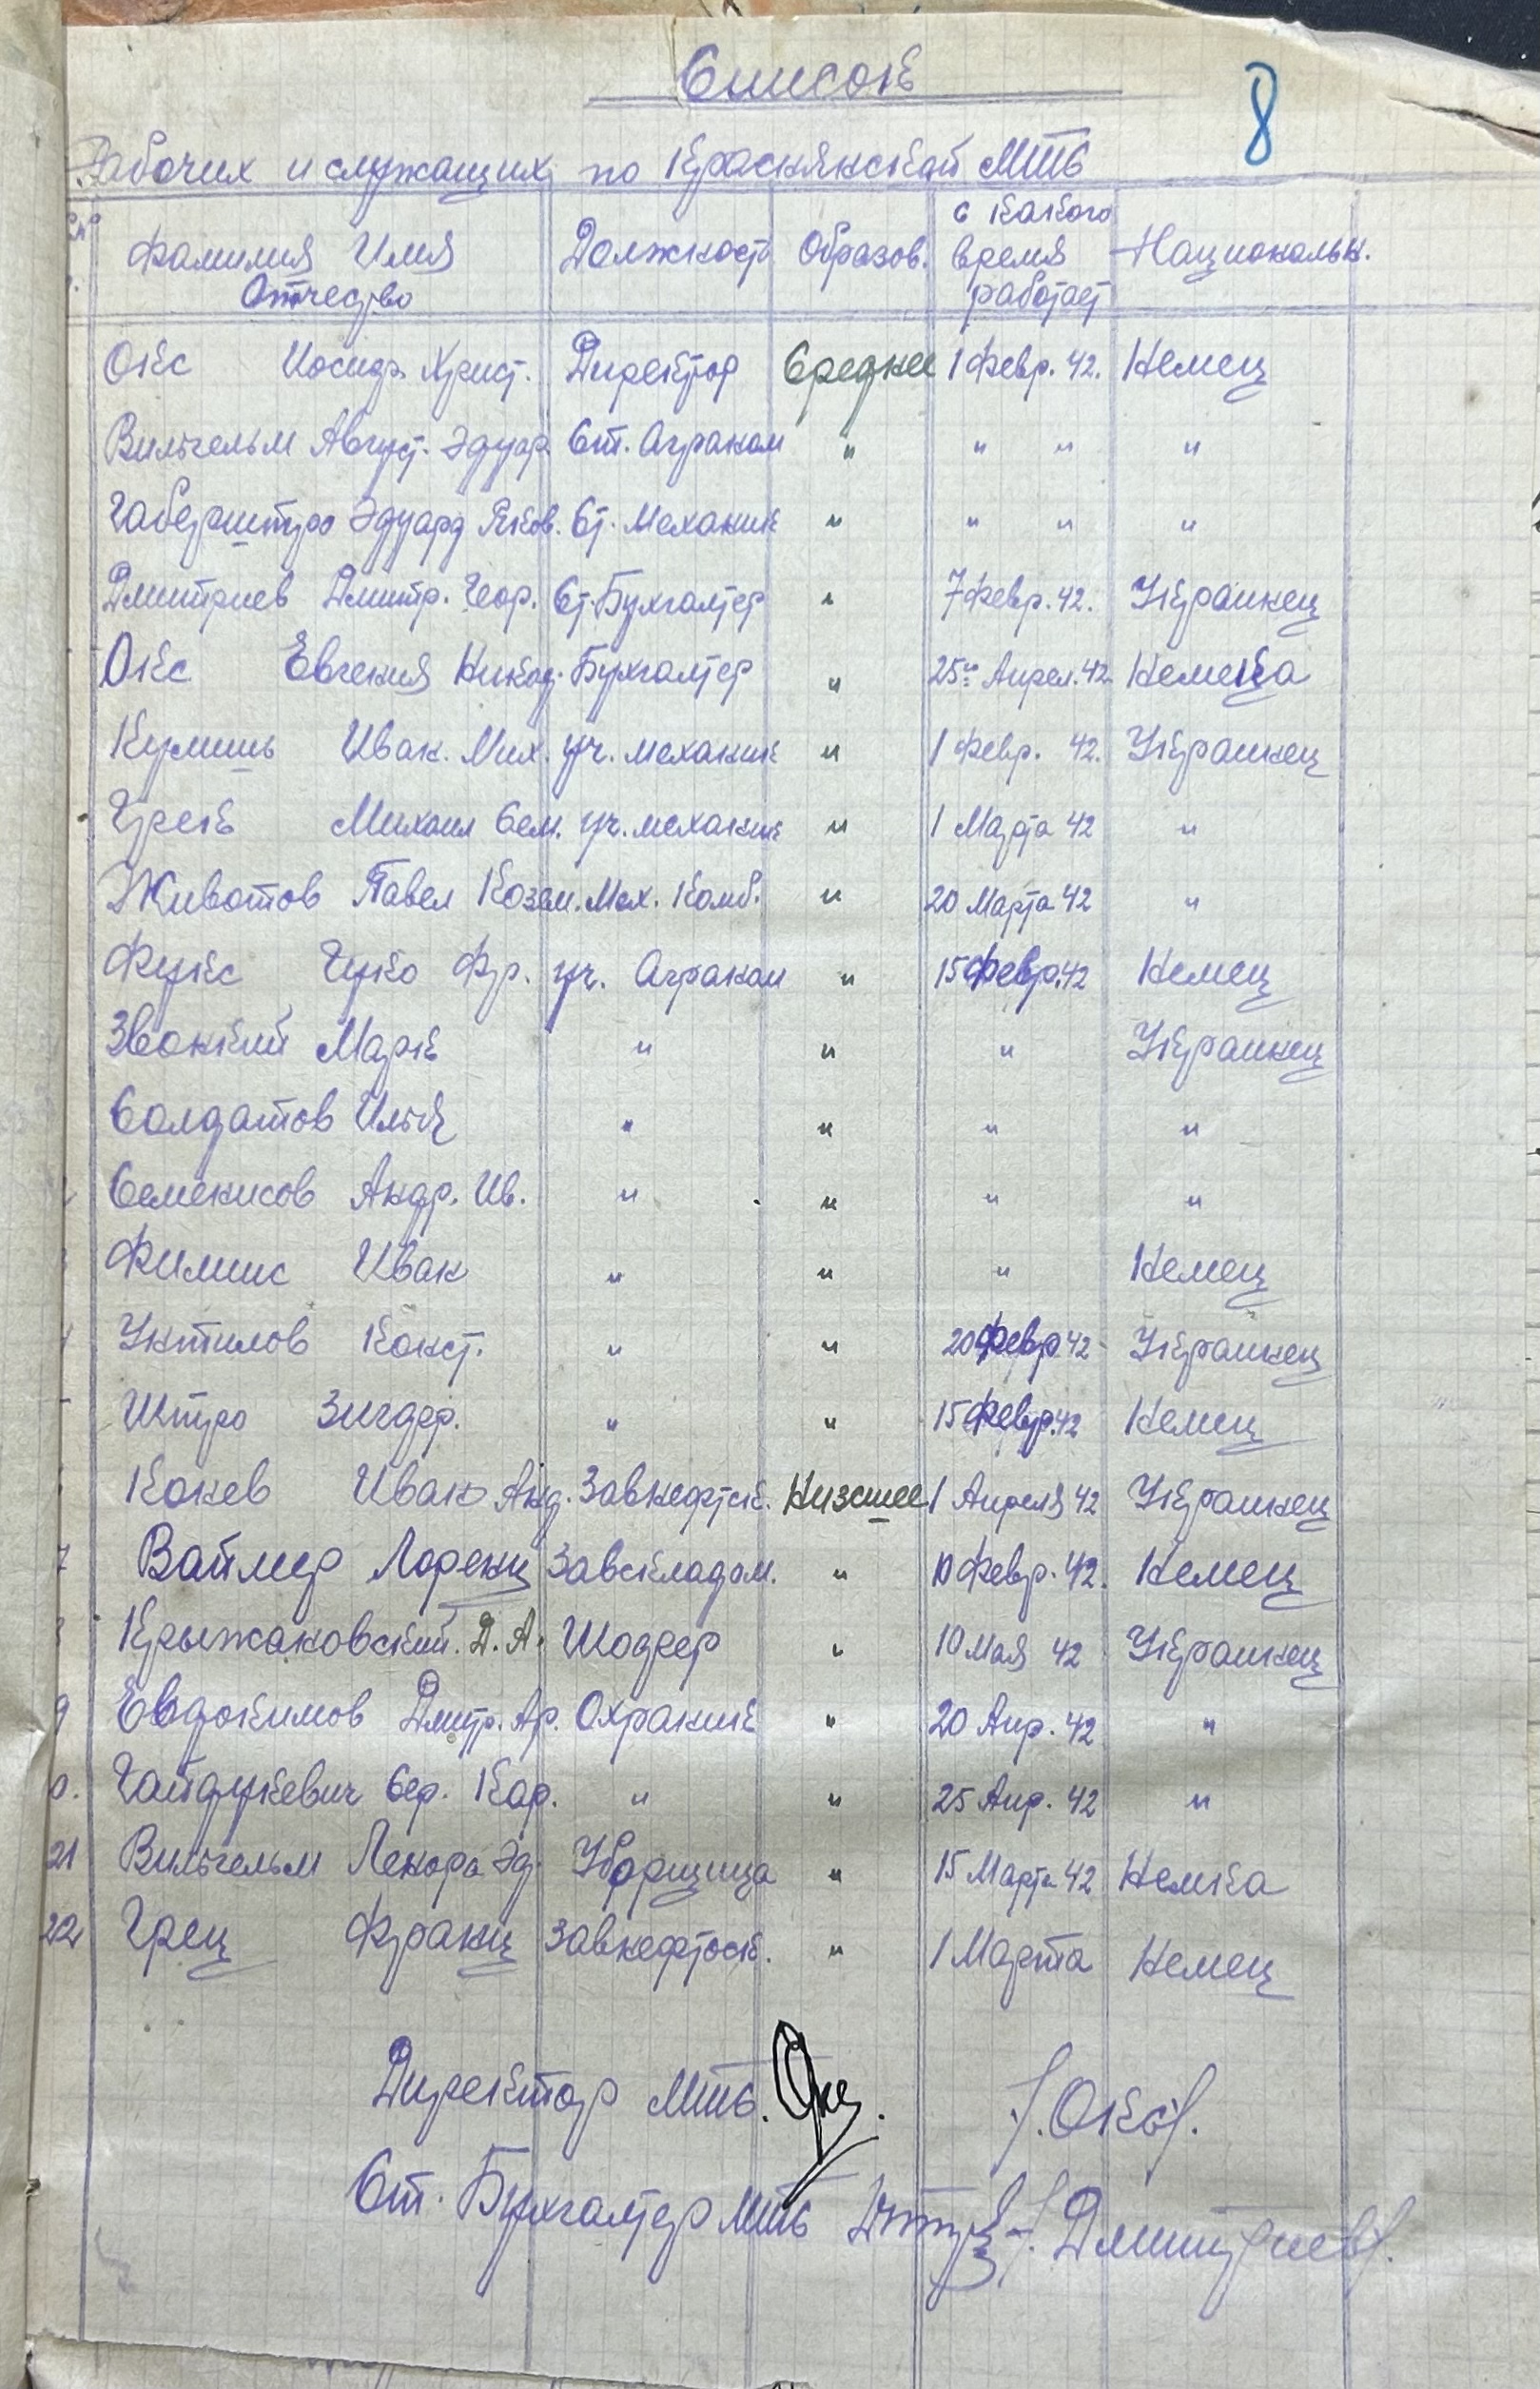 Список
8
Рабочих и служащих по Краснянской МТС
Фамилия Имя Отчество Должность Образов. С какого время работает Национальн.
Окс Иосиф Христ. Директор Среднее 1 Февр. 42. Немец
Вильгельм Август. Эдуар. Ст. Аграном " " " "
Габерштро Эдуард Яков. Ст. Механик " " " "
Дмитриев Дмитр. Геор. Ст. Бухгалтер " 7 Февр. 42. Украинец
Окс Евгения Никод. Бухгалтер " 25го Апрел. 42 Немека
Кулишь Иван. Мих. уч. механик " 1 Февр. 42. Украинец
Грек Михаил Сем. уч. механик " 1 Марта 42 "
Животов Павел Козам. Мех. Комб. " 20 Марта 42 "
Фукс Гуко Фр. уч. Аграном " 15 Февр. 42 Немец
Звонкий Марк " " " Украинец
Солдатов Илья " " " "
Семенисов Андр. Ив. " " " "
Филипс Иван " " " Немец
Унтилов Конст. " " 20 Февр 42 Украинец
Штро Зигфр. " " 15 Февр. 42 Немец
Конев Иван Анд. Завнефтск. Низшее 1 Апреля 42 Украинец
7 Ваймер Лоренц Завскладом. " 10 Февр. 42. Немец
Крыжановский. Д. А. Шофер " 10 Мая 42 Украинец
9 Евдокимов Дмитр. Ар. Охраник " 20 Апр. 42 "
0. Гайдукевич Сер. Кар. " " 25 Апр. 42 "
21 Вильгельм Ленора Эд. Уборщица " 15 Марта 42 Немка
22 Грец Франц Завнефтоск. " 1 Марта Немец
Директор МТС. Окс. /. Окс/.
Ст. Бухгалтер МТС /. Дмитриев/.